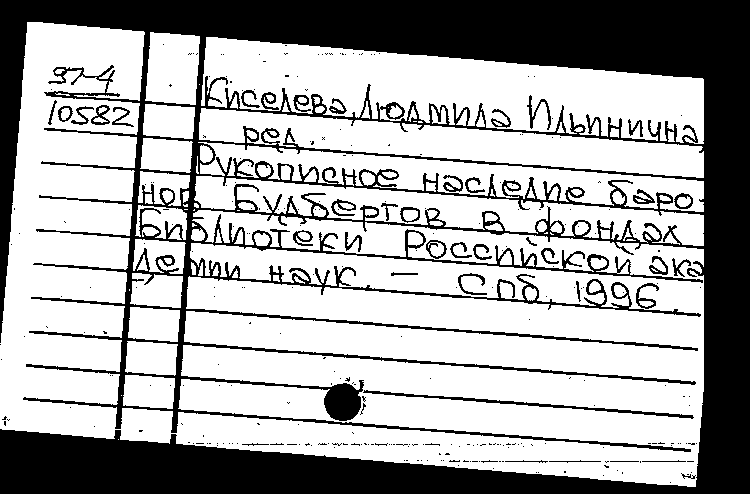 97-4
10582
Киселева, Людмила Ильинична,
ред.
Рукописное наследие баро-
нов Будбертов в фондах
Библиотеки Российской ака
демии наук. — Спб, 1996.